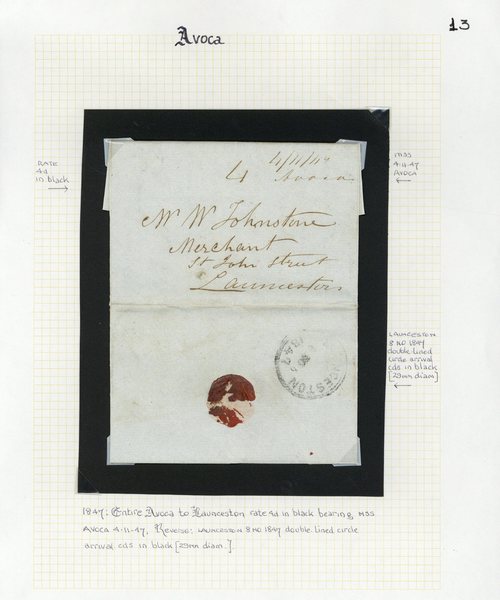 Avoca
13
RATE
4d
in black
MSS
4-11-47
AVOCA
4
4/11/47
Avoca
Mr W Johnstone
Merchant
St John Street
Launceston
LAUNCESTON
8 NO 1847
double lined
circle arrival
cds in black
[29mm diam]
1847
1847: Entire Avoca to Launceston rate 4d in black bearing MSS
AVOCA 4-11-47, Reverse: LAUNCESTON 8 NO 1847 double lined circle
arrival cds in black [29mm diam.].